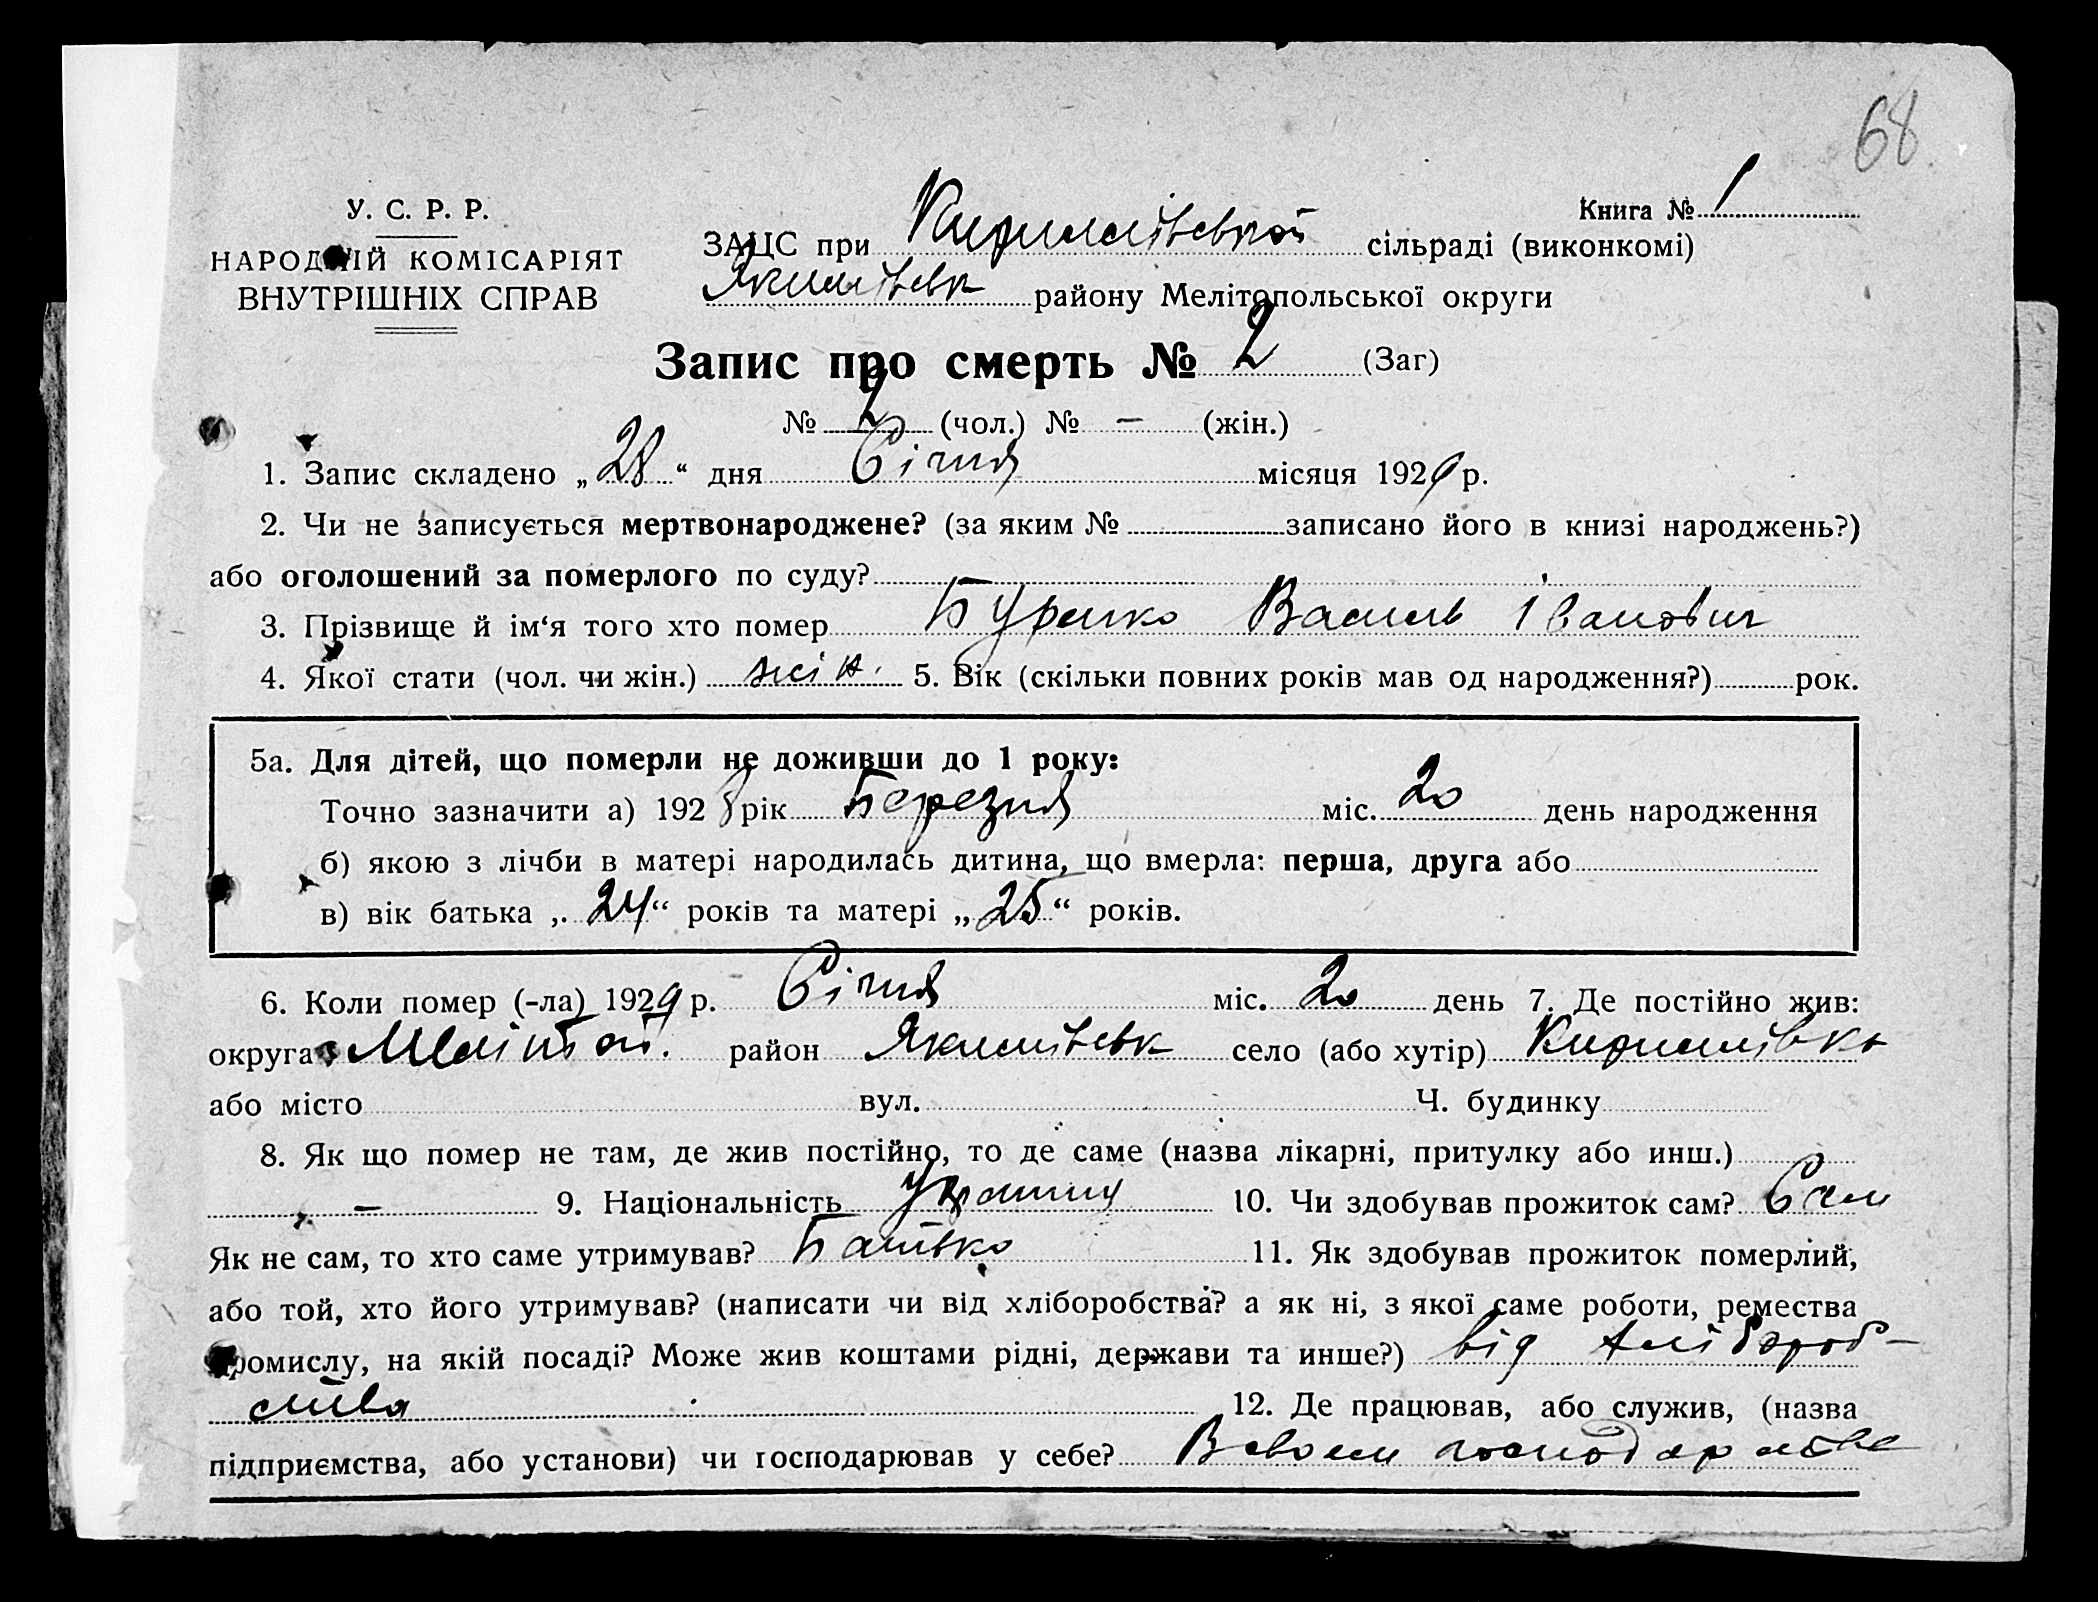 68
У. С. Р. Р.
НАРОДНІЙ КОМІСАРІЯТ
ВНУТРІШНІХ СПРАВ
Книга № 1
ЗАЦС при Кирилівській сільраді (виконкомі)
Якимівськ району Мелітопольської округи
Запис про смерть № 2 (Заг)
№ 2 (чол.) № — (жін.)
1. Запис складено „28“ дня Січня місяця 1929 р.
2. Чи не записується мертвонароджене? (за яким № записано його в книзі народжень?)
або оголошений за померлого по суду?
3. Прізвище й ім‘я того хто помер Буренко Василь Іванович
4. Якої стати (чол. чи жін.) жін. 5. Вік (скільки повних років мав од народження?) рок.
5а. Для дітей, що померли не доживши до 1 року:
Точно зазначити а) 1928 рік Березня міс. 20 день народження
б) якою з лічби в матері народилась дитина, що вмерла: перша, друга або
в) вік батька „24“ років та матері „25“ років.
6. Коли помер (-ла) 1929 р. Січня міс. 20 день 7. Де постійно жив:
округа Мелітоп. район Якимівськ село (або хутір) Кирилівка
або місто вул. Ч. будинку
8. Як що помер не там, де жив постійно, то де саме (назва лікарні, притулку або инш.)
— 9. Національність 10. Чи здобував прожиток сам? Сам
Як не сам, то хто саме утримував? Батько 11. Як здобував прожиток померлий,
або той, хто його утримував? (написати чи від хліборобства? а як ні, з якої саме роботи, ремества
промислу, на якій посаді? Може жив коштами рідні, держави та инше?) від хлібороб-
ства 12. Де працював, або служив, (назва
підприємства, або установи) чи господарював у себе? В своем господарстве